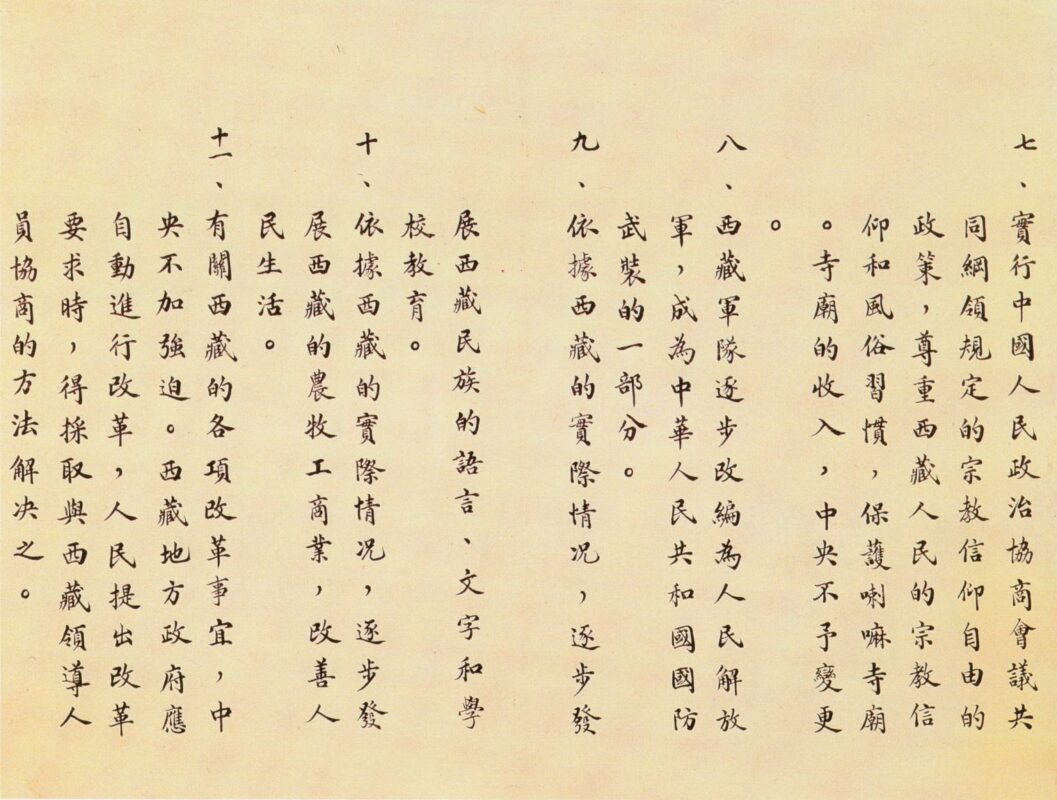 七、實行中國人民政治協商會議共
同綱領規定的宗教信仰自由的
政策，尊重西藏人民的宗教信
仰和風俗習慣，保護喇嘛寺廟
。寺廟的收入，中央不予變更
。
八、西藏軍隊逐步改編為人民解放
軍，成為中華人民共和國國防
武裝的一部分。
九、依據西藏的實際情况，逐步發
展西藏民族的語言、文字和學
校教育。
十、依據西藏的實際情况，逐步發
展西藏的農牧工商業，改善人
民生活。
十一、有關西藏的各項改革事宜，中
央不加強迫。西藏地方政府應
自動進行改革，人民提出改革
要求時，得採取與西藏領導人
員協商的方法解决之。